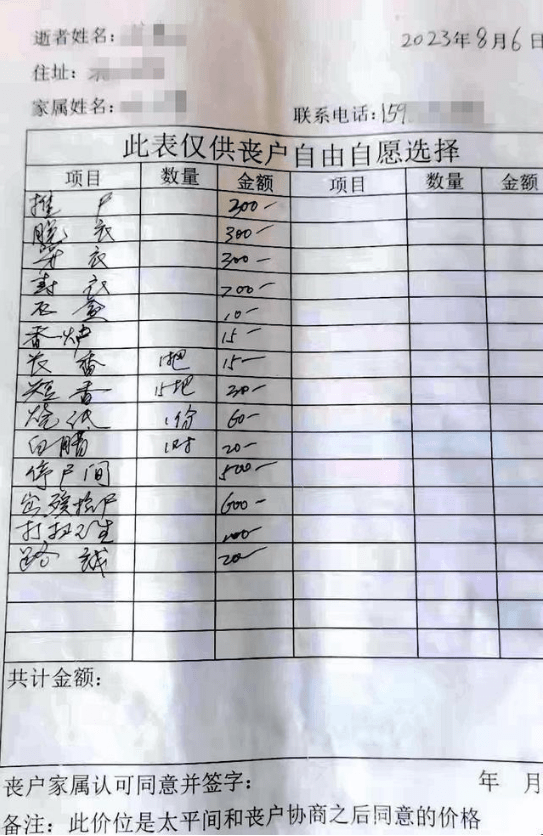 逝者姓名:
2023年8月6日
住址:
家属姓名:
联系电话:159
此表仅供丧户自由自愿选择
项目 数量 金额 项目 数量 金额
推 尸 300-
脱 衣 300-
穿 衣 300-
寿 衣
衣 盒 10-
香炉 15-
长 香 1把 15-
短 香 15把 30-
烧 纸 1份 60-
白腊 1对 20-
停尸间 500-
出殡抬尸 600-
打扫卫生 100-
路 钱 20-
共计金额:
丧户家属认可同意并签字: 年 月
备注:此价位是太平间和丧户协商之后同意的价格